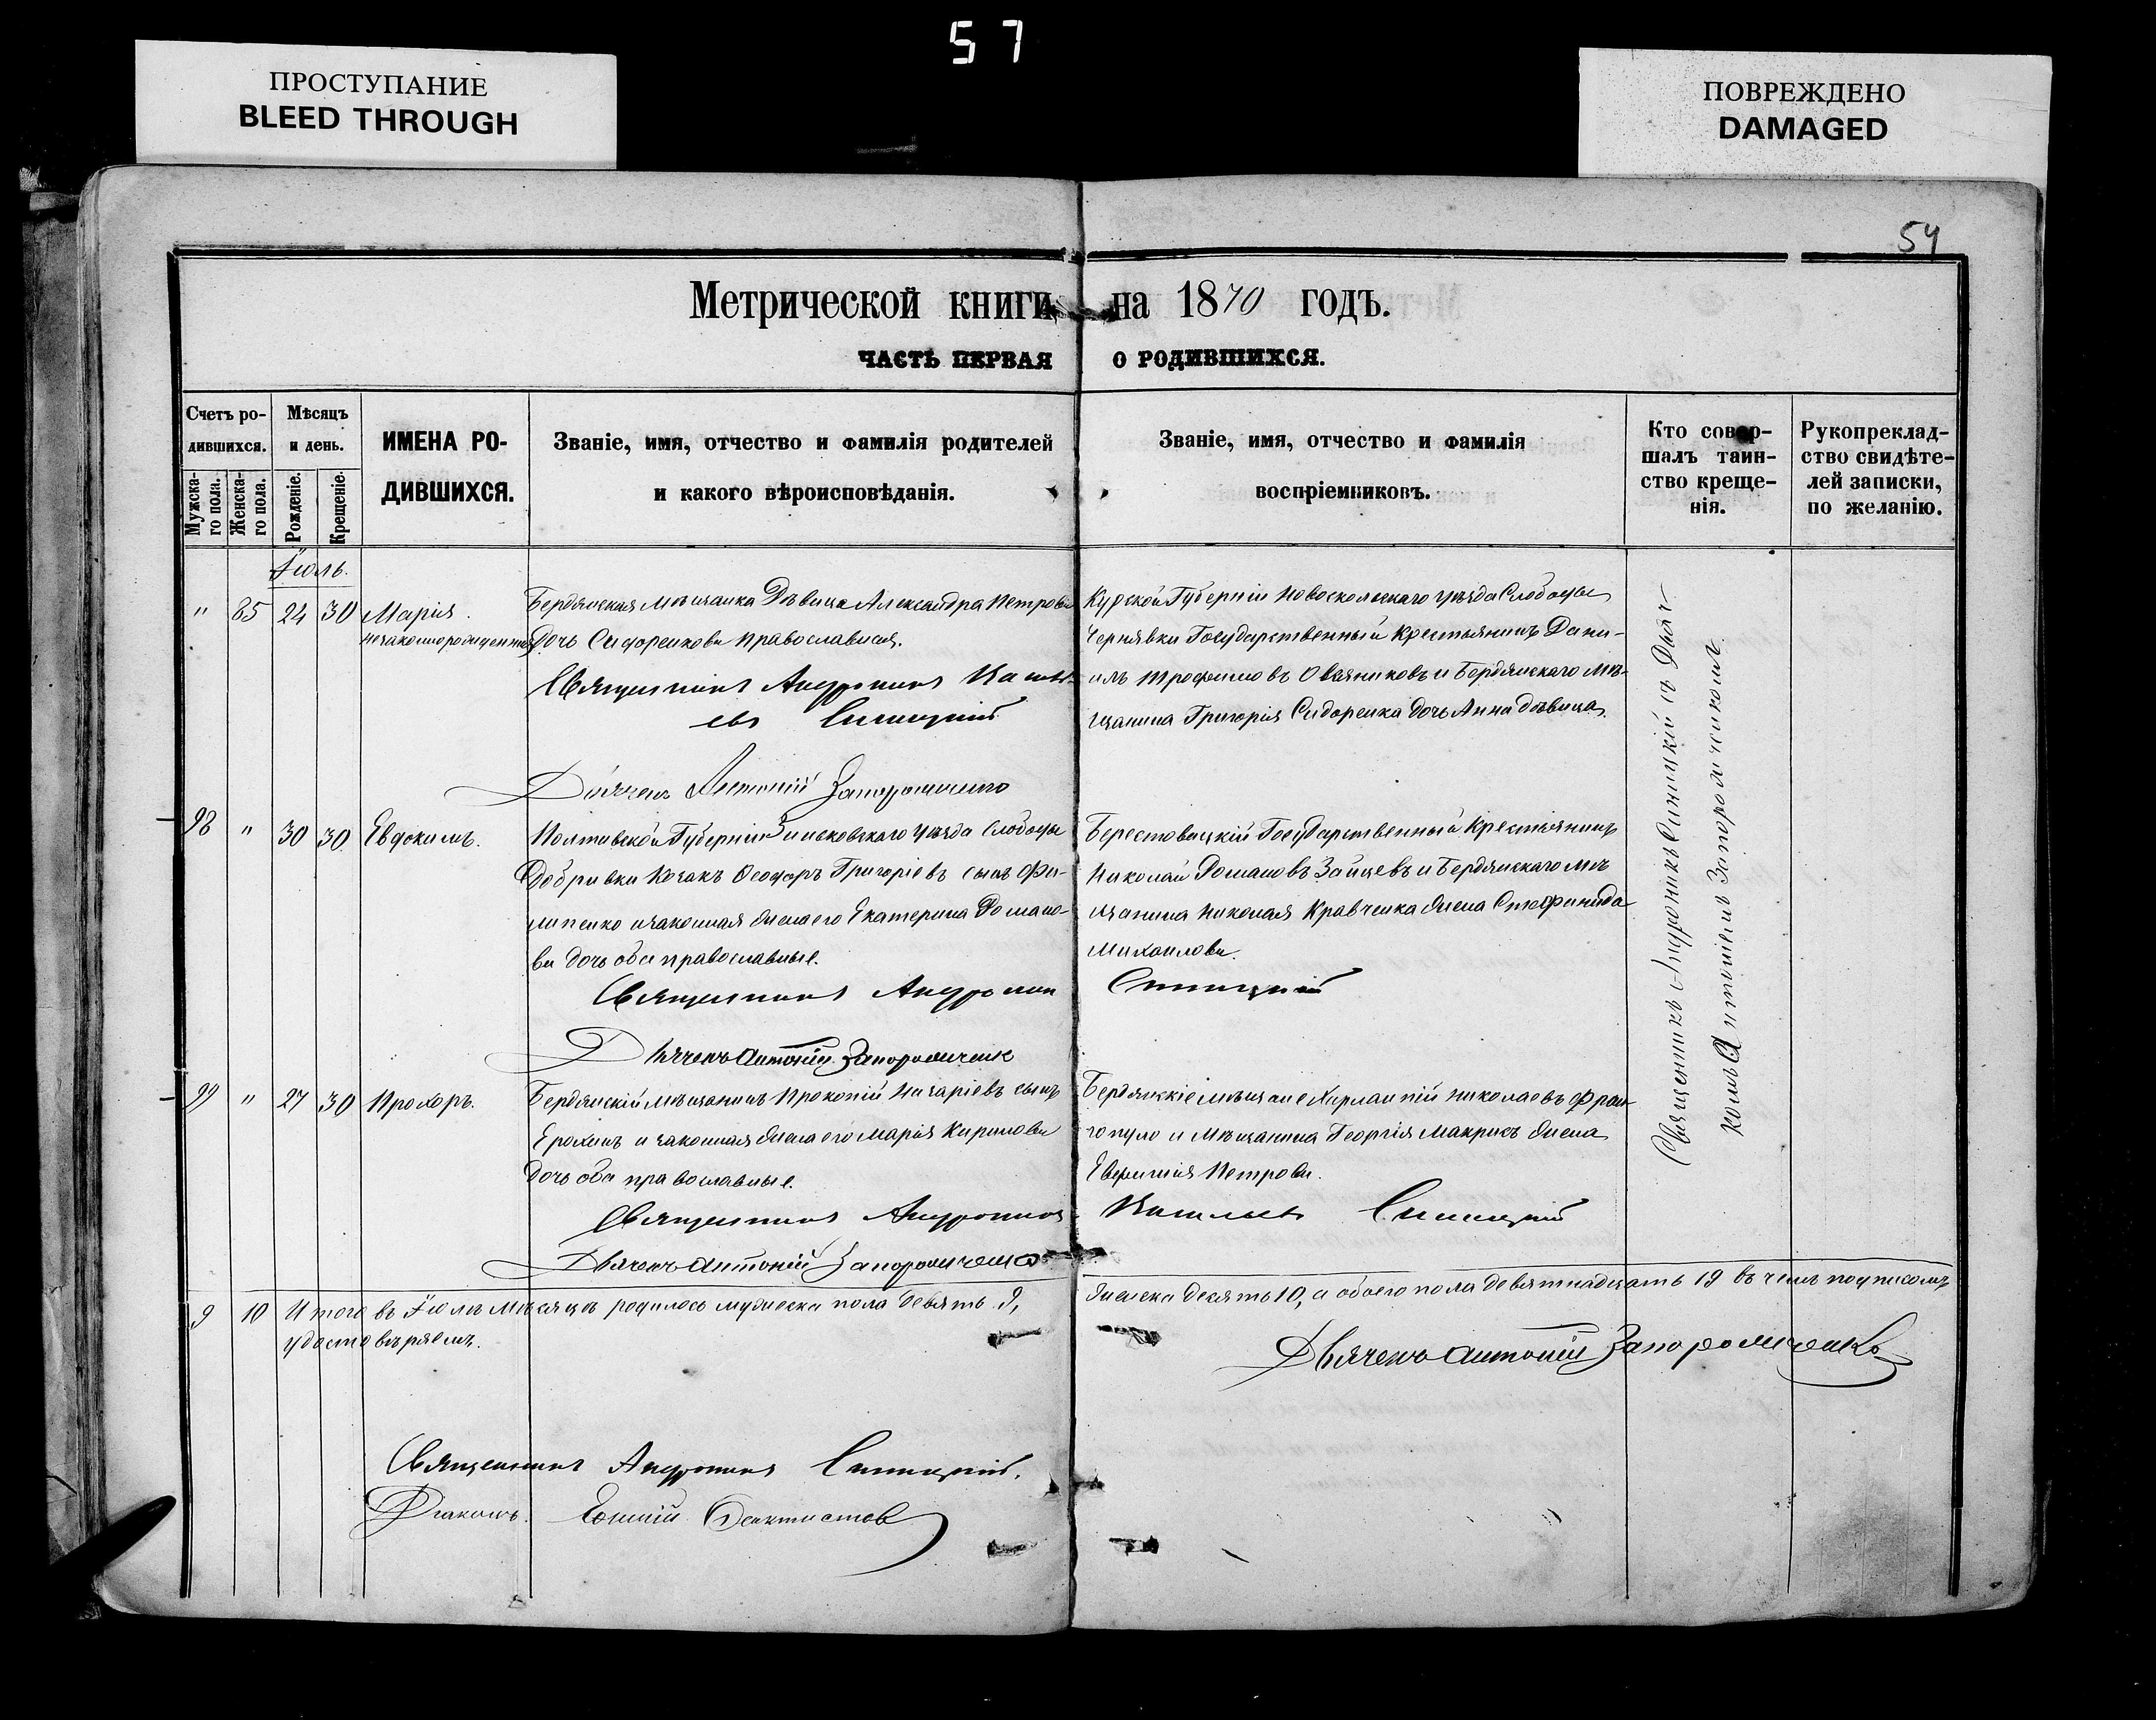 57
ПРОСТУПАНИЕ
BLEED THROUGH
ПОВРЕЖДЕНО
DAMAGED
54
Метрической книги на 1870 годъ.
ЧАСТЬ ПЕРВАЯ О РОДИВШИХСЯ.
Счетъ ро-
дившихся.
Мужска-
го пола.
Женска-
го пола.
Мѣсяцъ
и день.
Рожденіе.
Крещеніе.
ИМЕНА РО-
ДИВШИХСЯ.
Званіе, имя, отчество и фамилія родителей
и какого вѣроисповѣданія.
Званіе, имя, отчество и фамилія
воспріемниковъ.
Кто совер-
шалъ таин-
ство креще-
нія.
Рукопреклад-
ство свидѣте-
лей записки,
по желанію.
Іюль.
" 85 24 30 Марія.
незаконнорожденная
Бердянская мѣщанка Дѣвица Александра Петрова
дочь Сидоренкова православная.
Священникъ Андроникъ Василь-
евъ Синицкій
Дьячекъ Антоній Запорожченко
Курской Губерніи Новооскольскаго уѣзда Слободы
Чернявки Государственный крестьянинъ Дани-
илъ Трофимовъ Овсяниковъ и Бердянскаго мѣ-
щанина Григорія Сидоренка дочь Анна дѣвица.
Священникъ Андроникъ Синицкій съ Дьяч-
комъ Антоніемъ Запорожченкомъ.
98 " 30 30 Евдокимъ.
Полтавской Губерніи Зиньковскаго уѣзда Слободы
Добривки Козакъ Ѳеодоръ Григоріевъ сынъ Фи-
липенко и законная жена его Екатерина Романо-
ва дочь оба православные.
Берестовацкій Государственный Крестьянинъ
Николай Романовъ Зайцевъ и Бердянскаго мѣ
щанина Николая Кравченка жена Стефанида
Михайлова.
Священникъ Андроник Синицкій
Дьячекъ Антоній Запорожченко
99 " 27 30 Прохоръ.
Бердянскій мѣщанинъ Прокопій Назаріевъ сынъ
Ерохинъ и законная жена его Марія Кирилова
дочь оба православные.
Бердянскіе мѣщане Харлампій Николаевъ Фран-
гопуло и мѣщанина Георгія Макрисъ жена
Евфимія Петрова.
Священникъ Андроникъ Васильевъ Синицкій
Дьячекъ Антоній Запорожченко
9 10 Итого въ Іюлѣ мѣсяцѣ родилось мужеска пола девять 9, женска десять 10, а обоего пола девятнадцать 19 въ чемъ подписомъ
удостовѣряемъ.
Дьячекъ Антоній Запорожченко
Священникъ Андроникъ Синицкій.
Діаконъ Ѳеоктистов